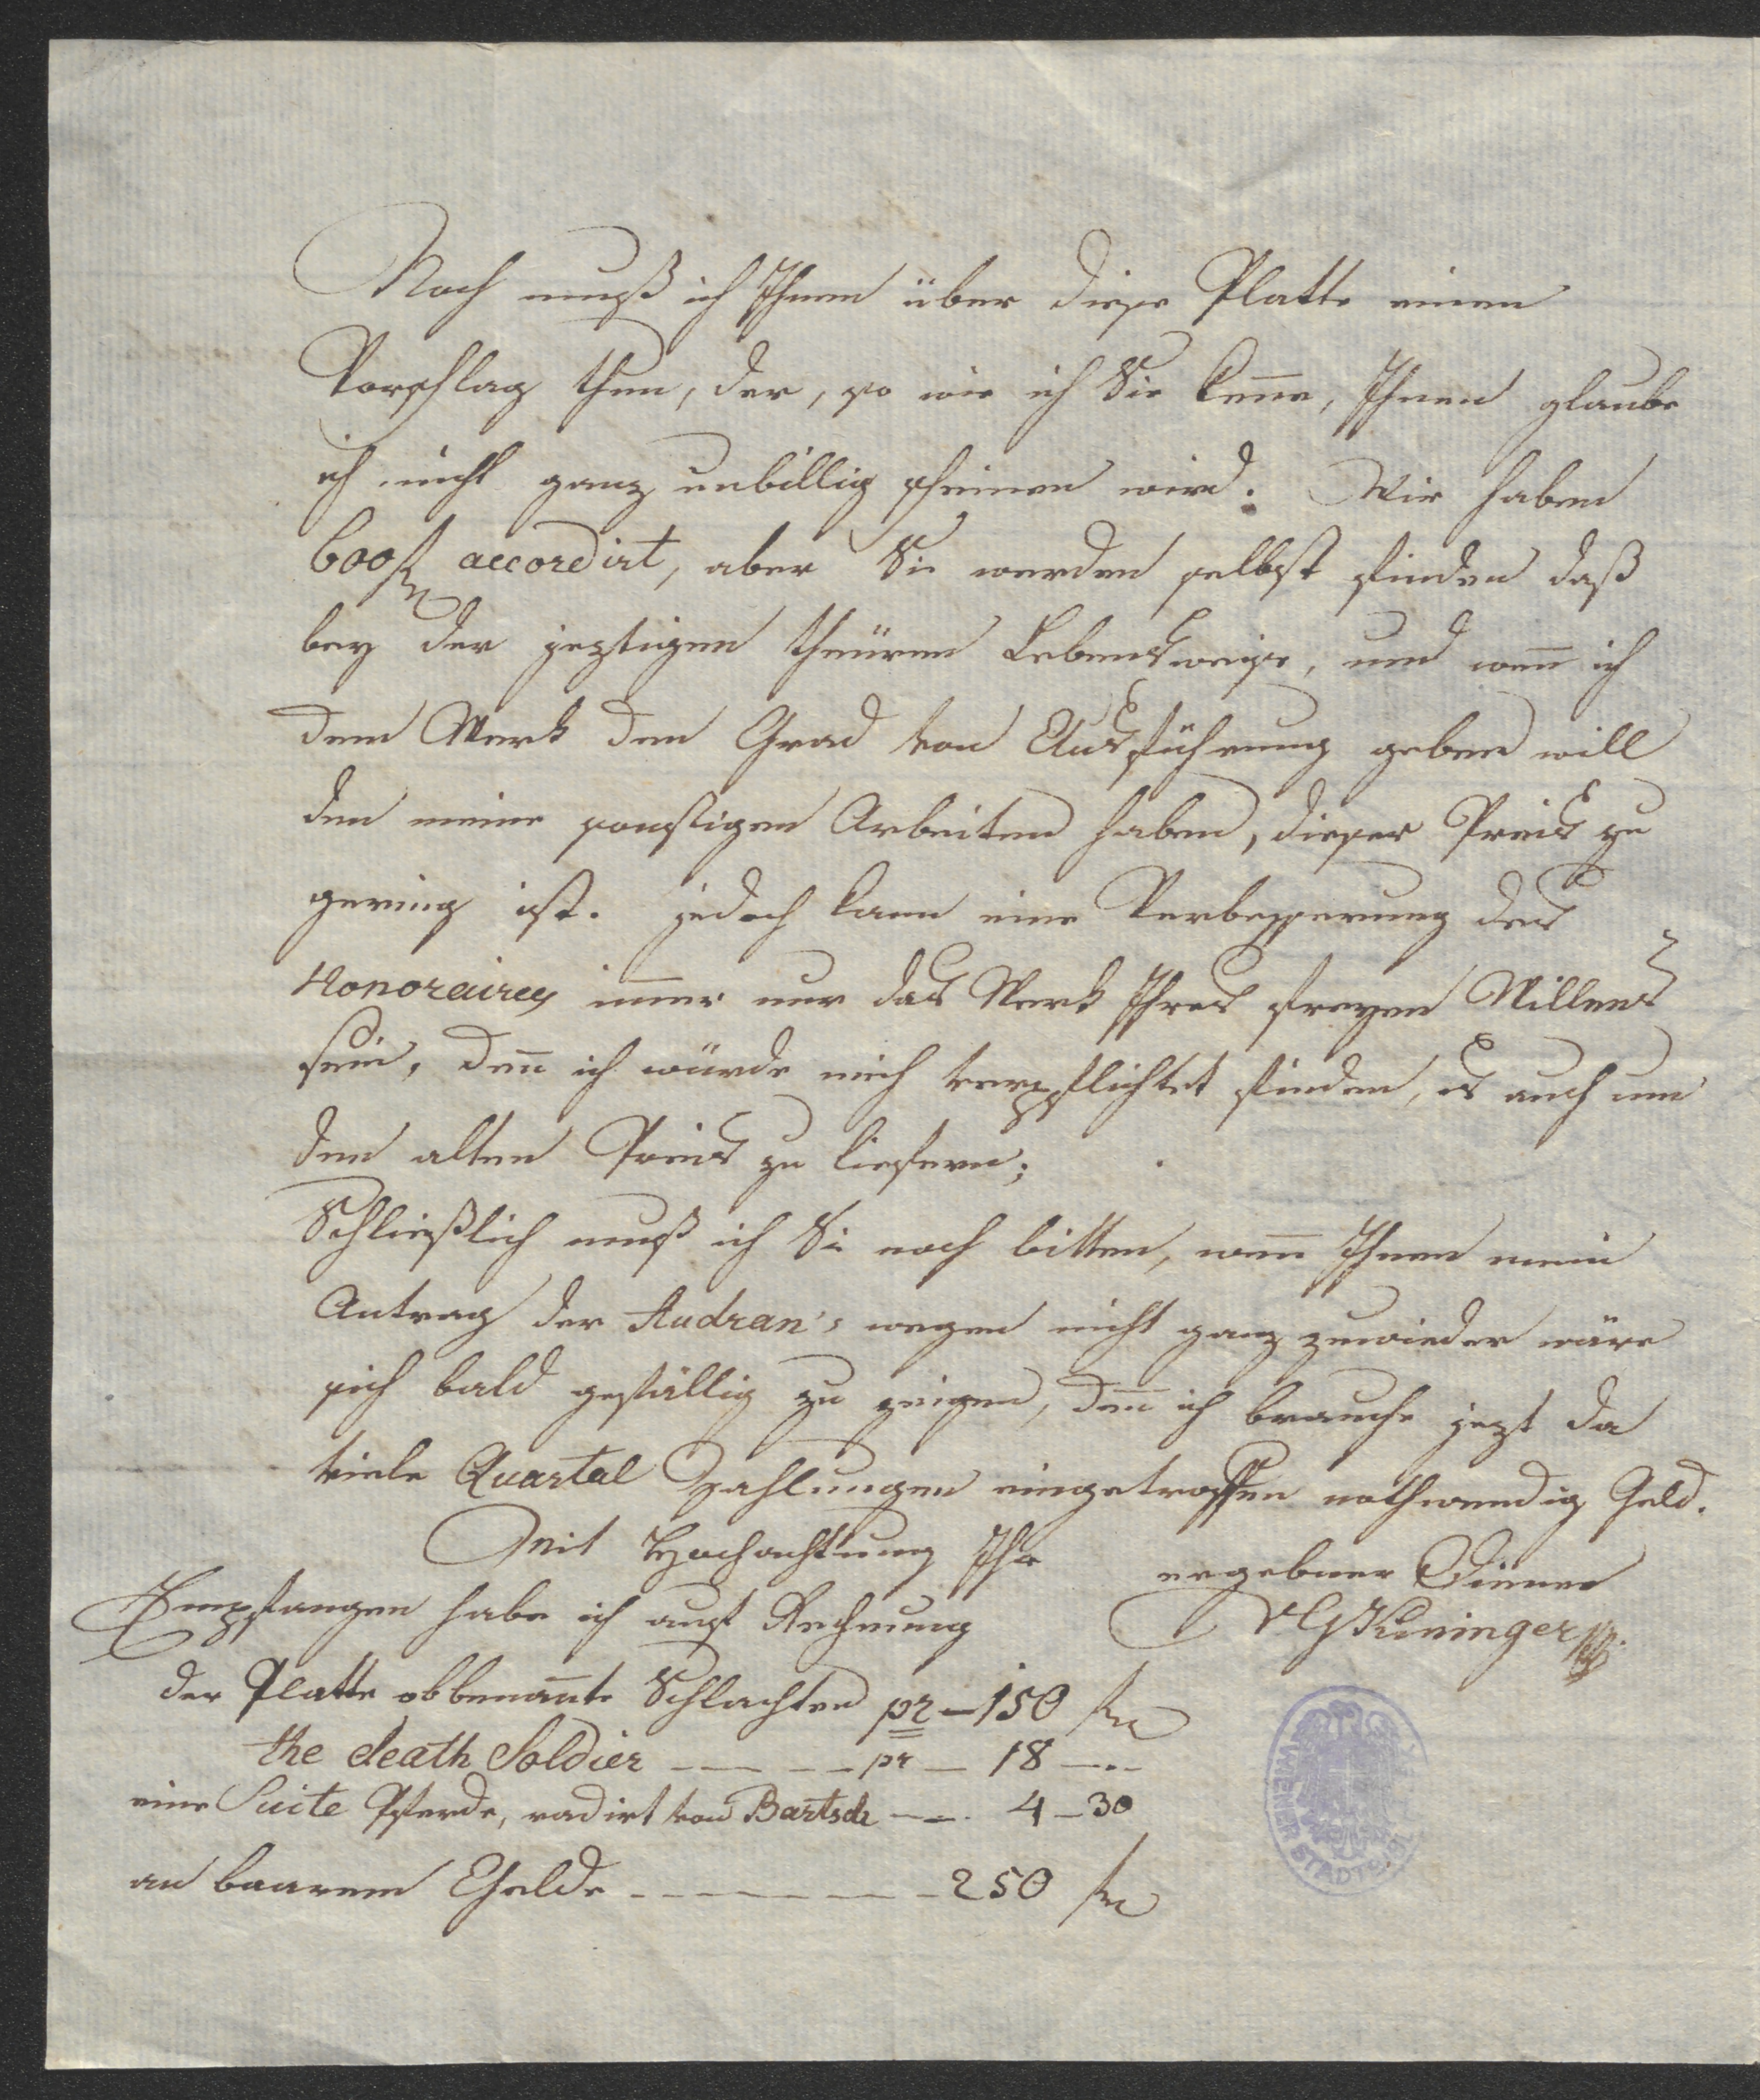 Noch muß ich Ihnen über diese Platte einen
Vorschlag thun, der, so wie ich Sie keñe, Ihnen glaube
ich nicht ganz unbillig scheinen wird. Wir haben
600 fl accordirt, aber Sie werden selbst finden daß
bey der jeztigen theüren Lebensweise, und weñ ich
dem Werk den Grad von Ausführung geben will
den meine sonstigen Arbeiten haben, dieser Preis zu
gering ist. jedoch kann eine Verbesserung des
Honoraires im̄er nur das Werk Ihres freyen Willens
sein, deñ ich würde mich verpflichtet finden, es auch um
den alten Preis zu liefern;
Schließlich muß ich Sie noch bitten, weñ Ihnen mein
Antrag der Audran's wegen nicht ganz zuwieder wäre
sich bald gefällig zu zeigen, deñ ich brauche jezt da
viele Quartal Zahlungen eingetroffen nothwendig Geld.
Mit Hochachtung Ihr ergebner Diener
VGKininger
Empfangen habe ich auf Rechnung
der Platte obbenañte Schlachten pr – 150 fl
the death Soldier — — — pr — 18 —..
eine Suite Pferde, radirt von Bartsch — — 4 – 30
an baarem Gelde — — — — — — 250 fl
WIENER STADTBIBL.